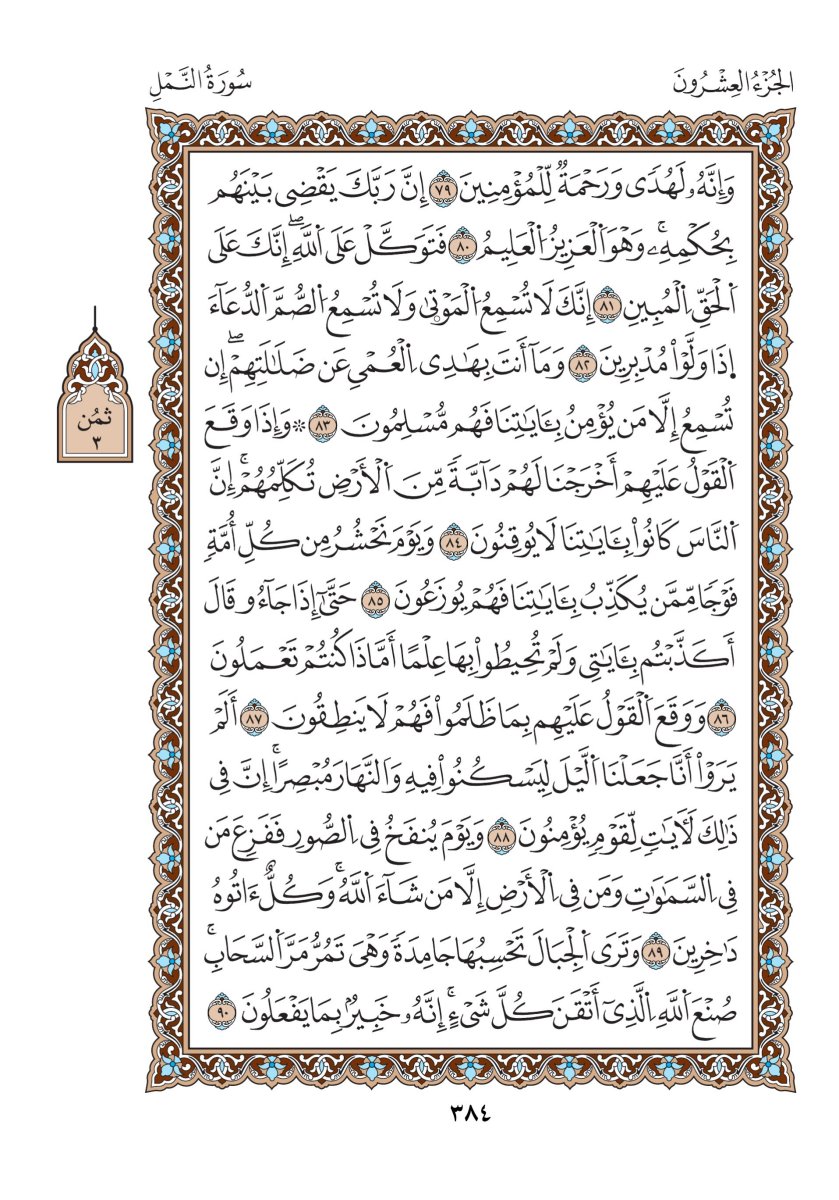 الجُزْءُ العِشْرُونَ
سُورَةُ النَّمْلِ
وَإِنَّهُۥ لَهُدٗى وَرَحۡمَةٞ لِّلۡمُؤۡمِنِينَ ٧٩ إِنَّ رَبَّكَ يَقۡضِي بَيۡنَهُم
بِحُكۡمِهِۦۚ وَهۡوَ اَ۬لۡعَزِيزُ اُ۬لۡعَلِيمُ ٨٠ فَتَوَكَّلۡ عَلَى اَ۬للَّهِۖ إِنَّكَ عَلَى
اَ۬لۡحَقِّ اِ۬لۡمُبِينِ ٨١ إِنَّكَ لَا تُسۡمِعُ اُ۬لۡمَوۡتٜىٰ وَلَا تُسۡمِعُ اُ۬لصُّمَّ اَ۬لدُّعَآءَ
اِ۪ذَا وَلَّوۡاْ مُدۡبِرِينَ ٨٢ وَمَآ أَنتَ بِهَٰدِي اِ۬لۡعُمۡيِ عَن ضَلَٰلَتِهِمۡۖ إِن
تُسۡمِعُ إِلَّا مَن يُؤۡمِنُ بِـَٔايَٰتِنَا فَهُم مُّسۡلِمُونَ ٨٣ ۞وَإِذَا وَقَعَ
اَ۬لۡقَوۡلُ عَلَيۡهِمۡ أَخۡرَجۡنَا لَهُمۡ دَآبَّةٗ مِّنَ اَ۬لۡأَرۡضِ تُكَلِّمُهُمۡۚ إِنَّ
اَ۬لنَّاسَ كَانُواْ بِـَٔايَٰتِنَا لَا يُوقِنُونَ ٨٤ وَيَوۡمَ نَحۡشُرُ مِن كُلِّ أُمَّةٖ
فَوۡجٗا مِّمَّن يُكَذِّبُ بِـَٔايَٰتِنَا فَهُمۡ يُوزَعُونَ ٨٥ حَتَّىٰٓ إِذَا جَآءُو قَالَ
أَكَذَّبۡتُم بِـَٔايَٰتِي وَلَمۡ تُحِيطُواْ بِهَا عِلۡمًا أَمَّاذَا كُنتُمۡ تَعۡمَلُونَ
٨٦ وَوَقَعَ اَ۬لۡقَوۡلُ عَلَيۡهِم بِمَا ظَلَمُواْ فَهُمۡ لَا يَنطِقُونَ ٨٧ أَلَمۡ
يَرَوۡاْ أَنَّا جَعَلۡنَا اَ۬لَّيۡلَ لِيَسۡكُنُواْ فِيهِ وَالنَّهَارَ مُبۡصِرًاۚ إِنَّ فِي
ذَٰلِكَ لَأٓيَٰتٖ لِّقَوۡمٖ يُؤۡمِنُونَ ٨٨ وَيَوۡمَ يُنفَخُ فِي اِ۬لصُّورِ فَفَزِعَ مَن
فِي اِ۬لسَّمَٰوَٰتِ وَمَن فِي اِ۬لۡأَرۡضِ إِلَّا مَن شَآءَ اَ۬للَّهُۚ وَكُلٌّ ءَاتُوهُ
دَٰخِرِينَ ٨٩ وَتَرَى اَ۬لۡجِبَالَ تَحۡسِبُهَا جَامِدَةٗ وَهۡيَ تَمُرُّ مَرَّ اَ۬لسَّحَابِۚ
صُنۡعَ اَ۬للَّهِ اِ۬لَّذِيٓ أَتۡقَنَ كُلَّ شَيۡءٍۚ إِنَّهُۥ خَبِيرُۢ بِمَا يَفۡعَلُونَ ٩٠
ثُمُن
٣
٣٨٤